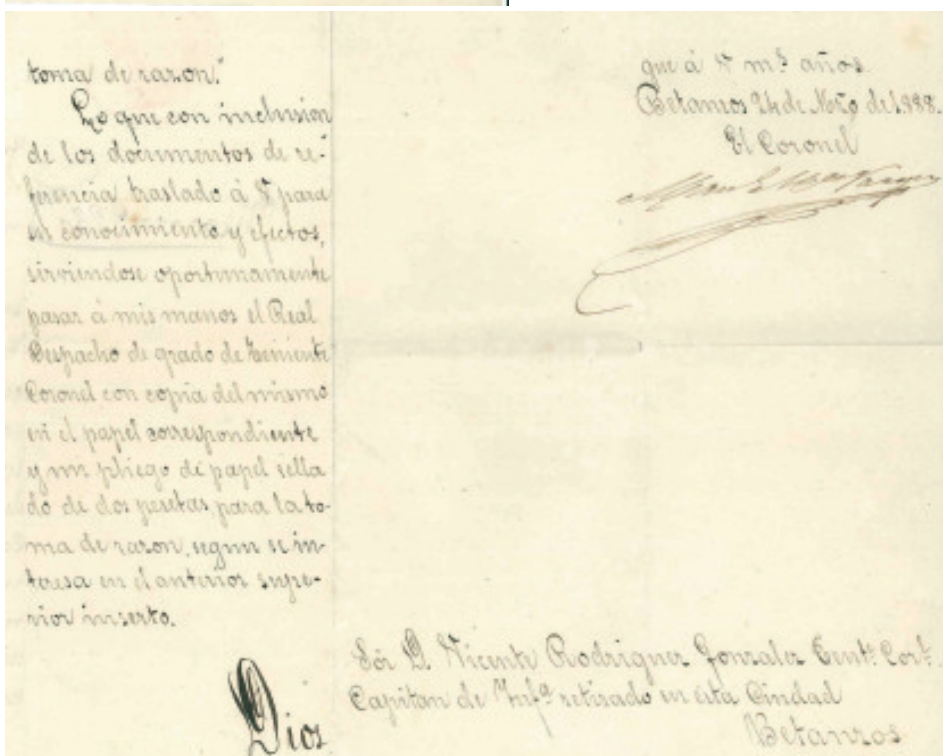 toma de razon."
Lo que con inclusion
de los documentos de re-
ferencia traslado á V. para
su conocimiento y efectos,
sirviendose oportunamente
pasar á mis manos el Real
Despacho de grado de Teniente
Coronel con copia del mismo
en el papel correspondiente
y un pliego de papel sella
do de dos pesetas, para la to-
ma de razon, segun se in-
teresa en el anterior supe-
rior inserto.
Dios
que á V. m.s años.
Betanzos 24 de Nbre de 1.888.
El Coronel
Sór D. Vicente Rodriguez Gonzalez Tent.e Cor.l
Capitan de Inf.a retirado en esta Ciudad
Betanzos